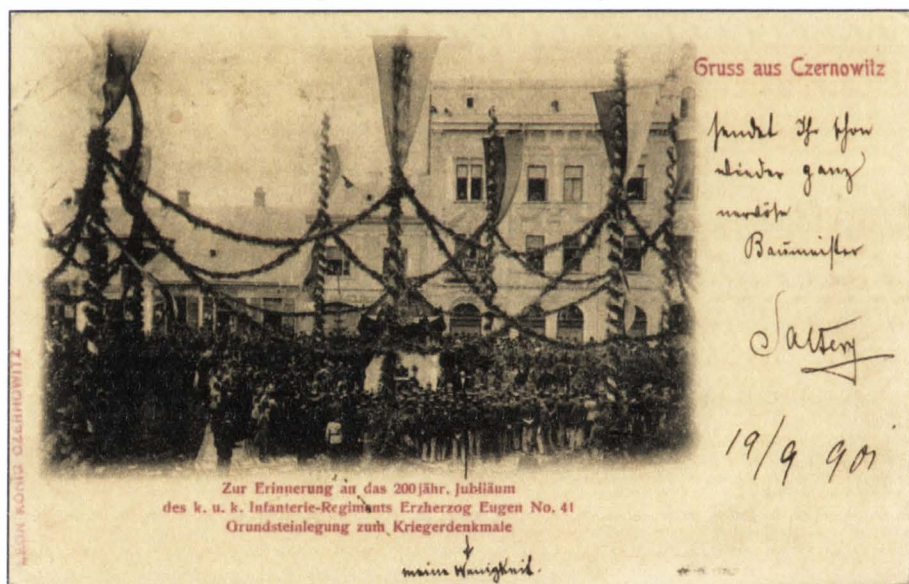 Gruss aus Czernowitz
sendet Ihr schon
wieder ganz
nervöse
Baumeister
19/9 901
Zur Erinnerung an das 200jähr. Jubiläum
des k. u. k. Infanterie-Regiments Erzherzog Eugen No. 41
Grundsteinlegung zum Kriegerdenkmale
meine Wenigkeit.
LEON KÖNIG CZERNOWITZ